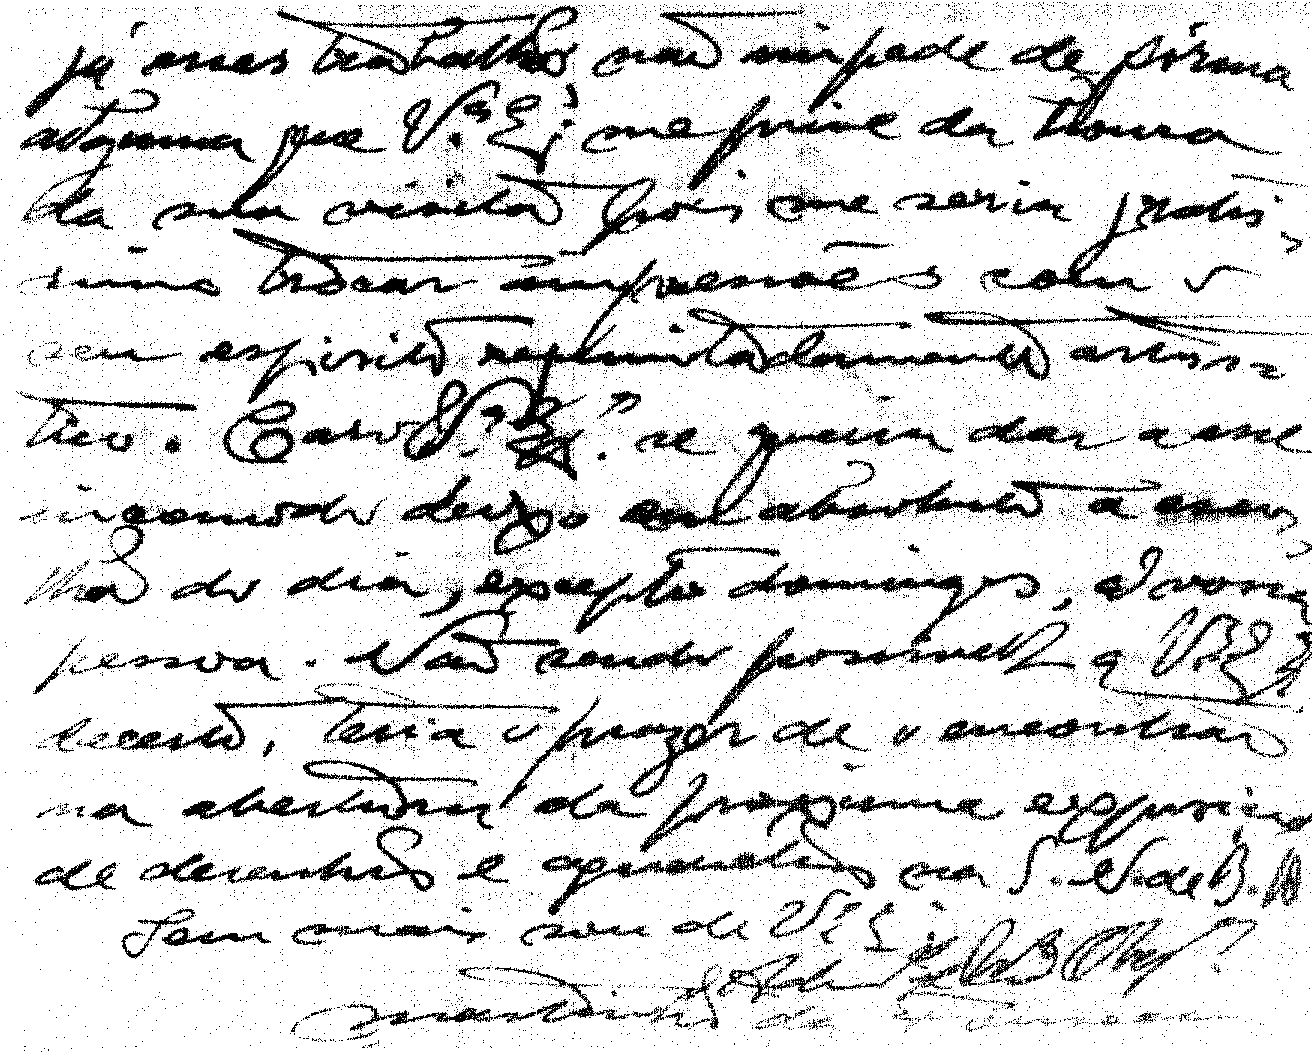 já esses trabalhos não impede de fórma
alguma que V.ª Ex.ª me prive da honra
da sua visita pois me seria gratis-
simo trocar impressões com o
seu espirito requintadamente artis-
tico. Caso V.ª Ex.ª se queira dar a esse
incomodo deixo em absoluto a esco-
lha do dia, excepto domingos, á vossa
pessoa. Não sendo possivel q V. Ex.ª
decerto, teria o prazer de o encontrar
na abertura da proxima exposição
de desenhos e aguarelas na S. N. de B. A
Sem mais sou de V.ª Ex.ª
Martinho da Fonseca